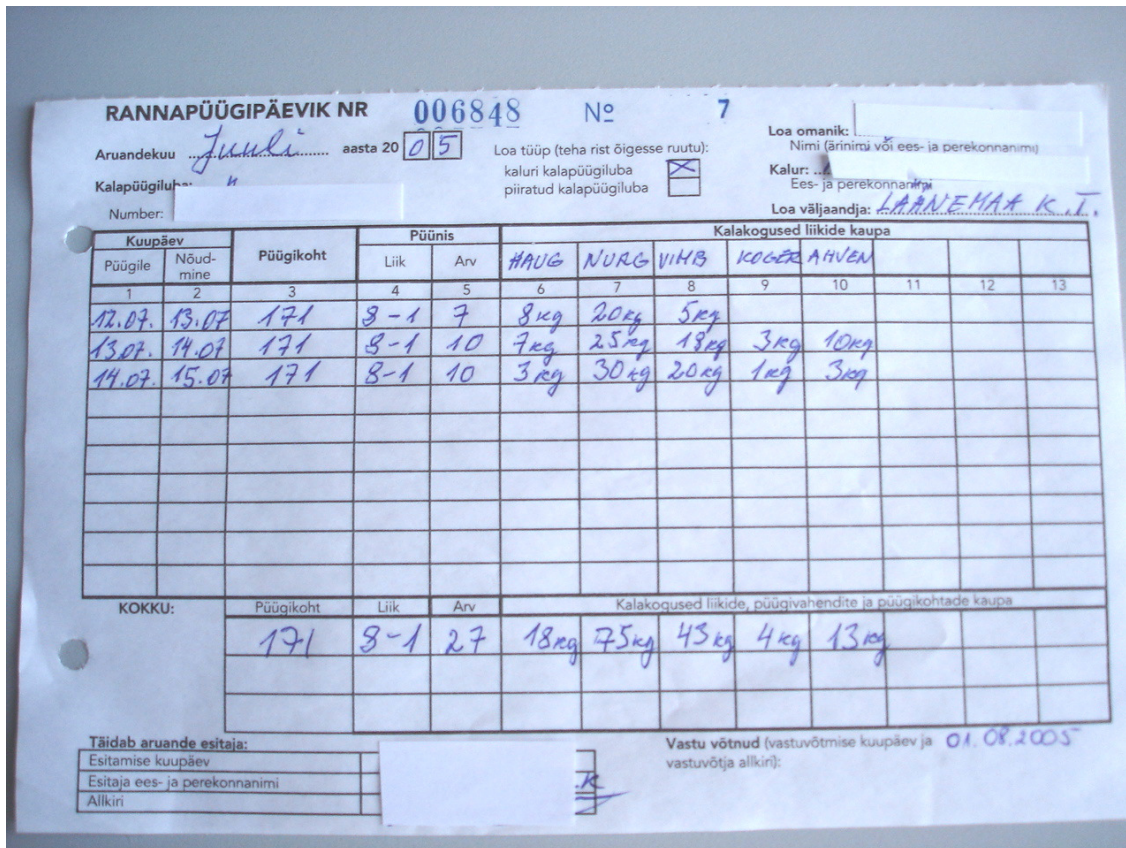 RANNAPÜÜGIPÄEVIK NR 006848 Nº 7
Aruandekuu Juuli aasta 20 05
Loa tüüp (teha rist õigesse ruutu):
kaluri kalapüügiluba
piiratud kalapüügiluba
Loa omanik:
Nimi (ärinimi või ees- ja perekonnanimi)
Kalur:
Ees- ja perekonnanimi
Loa väljaandja: LÄÄNEMAA K.T.
Kalapüügiluba:
Number:
Kuupäev Püügikoht Püünis Kalakogused liikide kaupa
Püügile Nõud-mine Liik Arv HAUG NURG VIMB KOGER AHVEN
1 2 3 4 5 6 7 8 9 10 11 12 13
12.07. 13.07 171 8-1 7 8kg 20kg 5kg
13.07. 14.07 171 8-1 10 7kg 25kg 18kg 3kg 10kg
14.07. 15.07 171 8-1 10 3kg 30kg 20kg 1kg 3kg
KOKKU: Püügikoht Liik Arv Kalakogused liikide, püügivahendite ja püügikohtade kaupa
171 8-1 27 18kg 75kg 43kg 4kg 13kg
Täidab aruande esitaja:
Esitamise kuupäev
Esitaja ees- ja perekonnanimi
Allkiri
Vastu võtnud (vastuvõtmise kuupäev ja 01.08.2005
vastuvõtja allkiri):